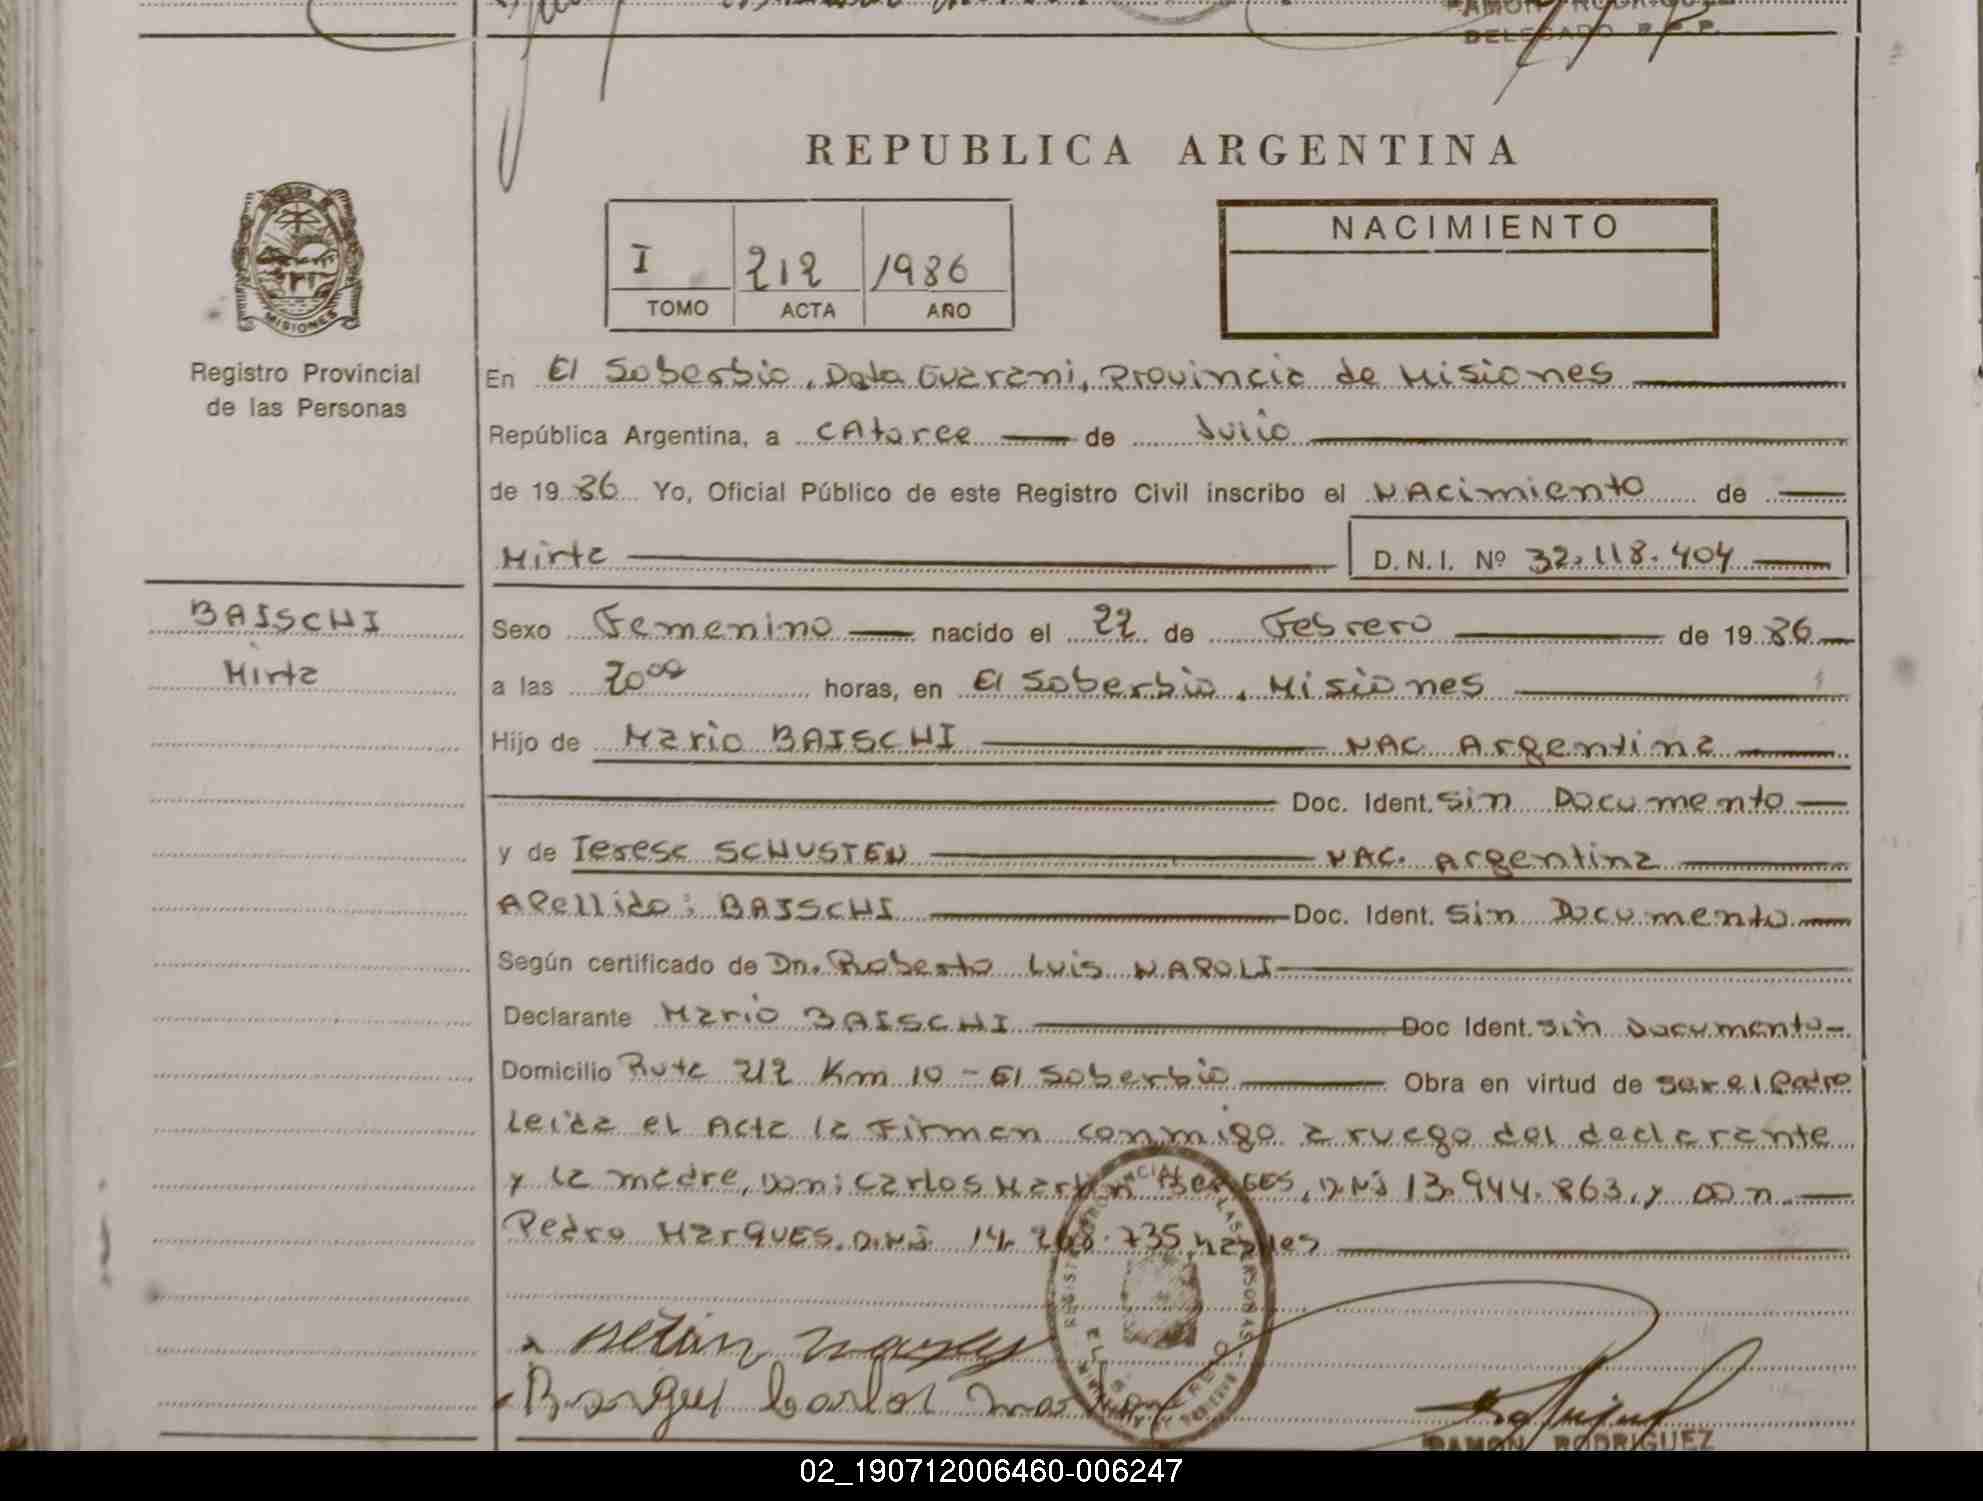 RAMON RODRIGUEZ
DELEGADO R.P.P.
REPUBLICA ARGENTINA
MISIONES
Registro Provincial
de las Personas
I 212 1986
TOMO ACTA AÑO
NACIMIENTO
En El Soberbio, Dpto Guarani, Provincia de Misiones
República Argentina, a CAtorce de Julio
de 19 86 Yo, Oficial Público de este Registro Civil inscribo el NAcimiento de
Mirta D.N.I. Nº 32.118.404
BAISCHI
Mirta
Sexo Femenino nacido el 22 de Febrero de 19 86
a las 20⁰⁰ horas, en El Soberbio, Misiones
Hijo de Mario BAISCHI NAC Argentina
Doc. Ident. Sin Documento
y de Teresa SCHUSTER NAC. Argentina
Apellido: BAISCHI Doc. Ident. Sin Documento
Según certificado de Dn. Roberto Luis NAPOLI
Declarante Mario BAISCHI Doc Ident. Sin Documento
Domicilio Ruta 212 Km 10 - El Soberbio Obra en virtud de ser el Padre
Leida el Acta la Firman conmigo a ruego del declarante
y la madre, Don: Carlos Martin BORGES, D.N.I 13.944.863, y Don
Pedro MARQUES. D.N.I. 14. .735 habiles
Borges Carlos Martin
RAMON RODRIGUEZ
02_190712006460-006247